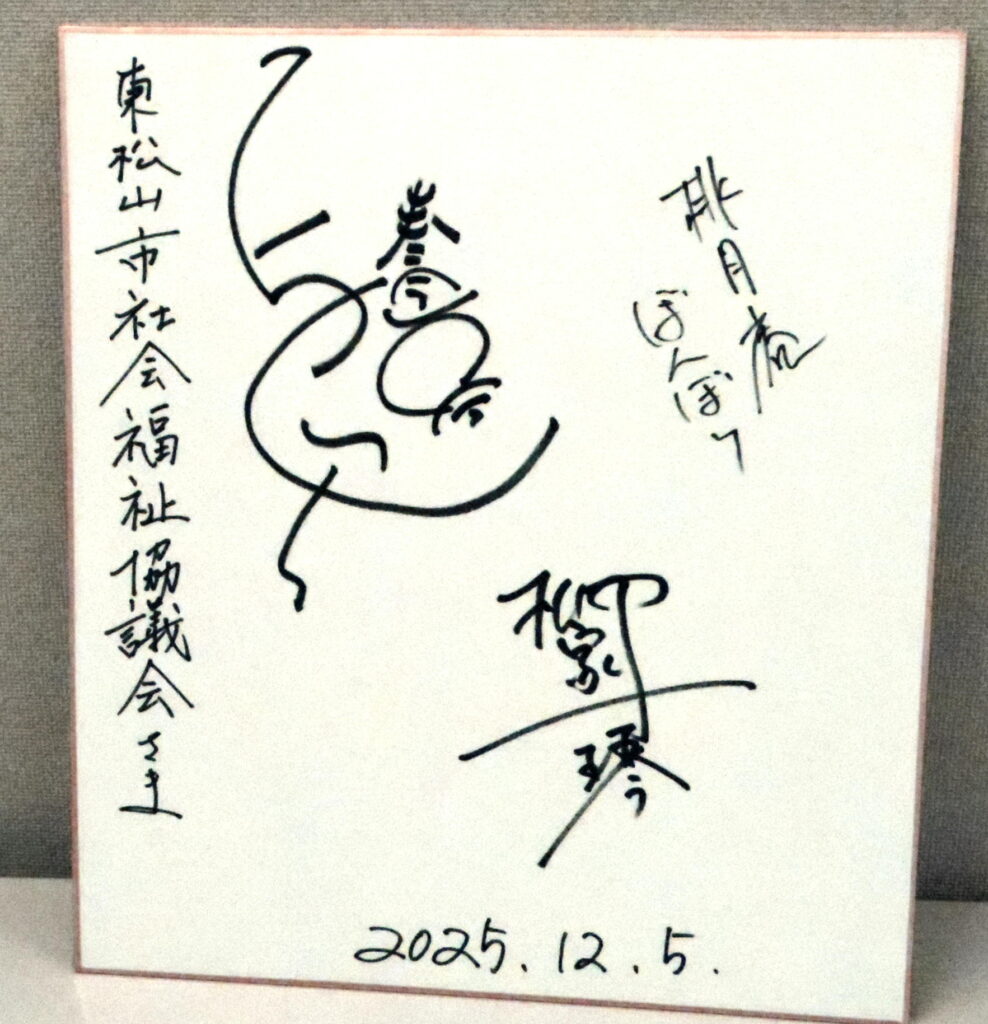 桃月庵
ぼんぼり
柳家
東松山市社会福祉協議会さま
2025.12.5.